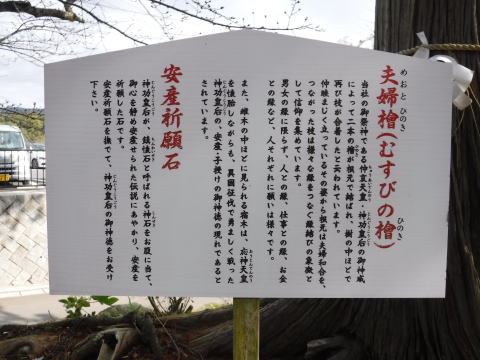 めおと ひのき
夫婦檜(むすびの檜)
ひのき
当社の御祭神である仲哀天皇・神功皇后の御神威
によって二本の檜が根元で結ばれ、樹の中ほどで
再び枝が合着したと云われています。
仲睦まじく立っているその姿から根元は夫婦和合を、
つながった枝は様々な縁をつなぐ縁結びの象徴と
して信仰を集めています。
男女の縁に限らず、人との縁、仕事との縁、お金
との縁など、人それぞれに願いは様々です。
また、雌木の中ほどに見られる宿木は、応神天皇
を懐胎しながらも、異国征伐で勇ましく戦った
神功皇后の、安産・子授けの御神徳の現れであると
されています。
安産祈願石
神功皇后が、鎮懐石と呼ばれる神石をお腹に当て、
御心を静め安産せられた伝説にあやかり、安産を
祈願した石です。
安産祈願石を撫でて、神功皇后の御神徳をお受け
下さい。